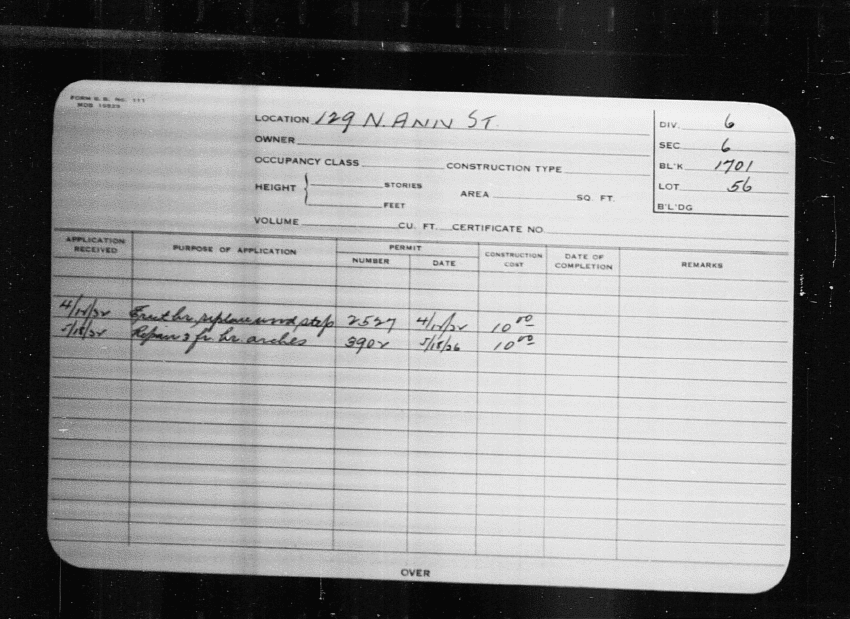 FORM U. B. No. 111
LOCATION 129 N. ANN ST.
OWNER
OCCUPANCY CLASS CONSTRUCTION TYPE
HEIGHT STORIES FEET AREA SQ. FT.
VOLUME CU. FT. CERTIFICATE NO.
DIV. 6
SEC 6
BL'K 1701
LOT 56
B'L'DG
APPLICATION RECEIVED PURPOSE OF APPLICATION PERMIT NUMBER DATE CONSTRUCTION COST DATE OF COMPLETION REMARKS
4/14/26 Erect br, replace wood steps 2527 4/14/26 10 00
5/18/26 Repair 3 fr. br. arches 3902 5/18/26 10 00
OVER